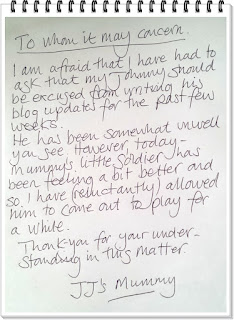 To whom it may concern.
I am afraid that I have had to
ask that my Johnny should
be excused from writing his
blog updates for the past few
weeks.
He has been somewhat unwell
you see. However, today -
Mummy's little soldier has
been feeling a bit better and
so, I have (reluctantly) allowed
him to come out to play for
a while.
Thank-you for your under-
standing in this matter.
JJ's Mummy